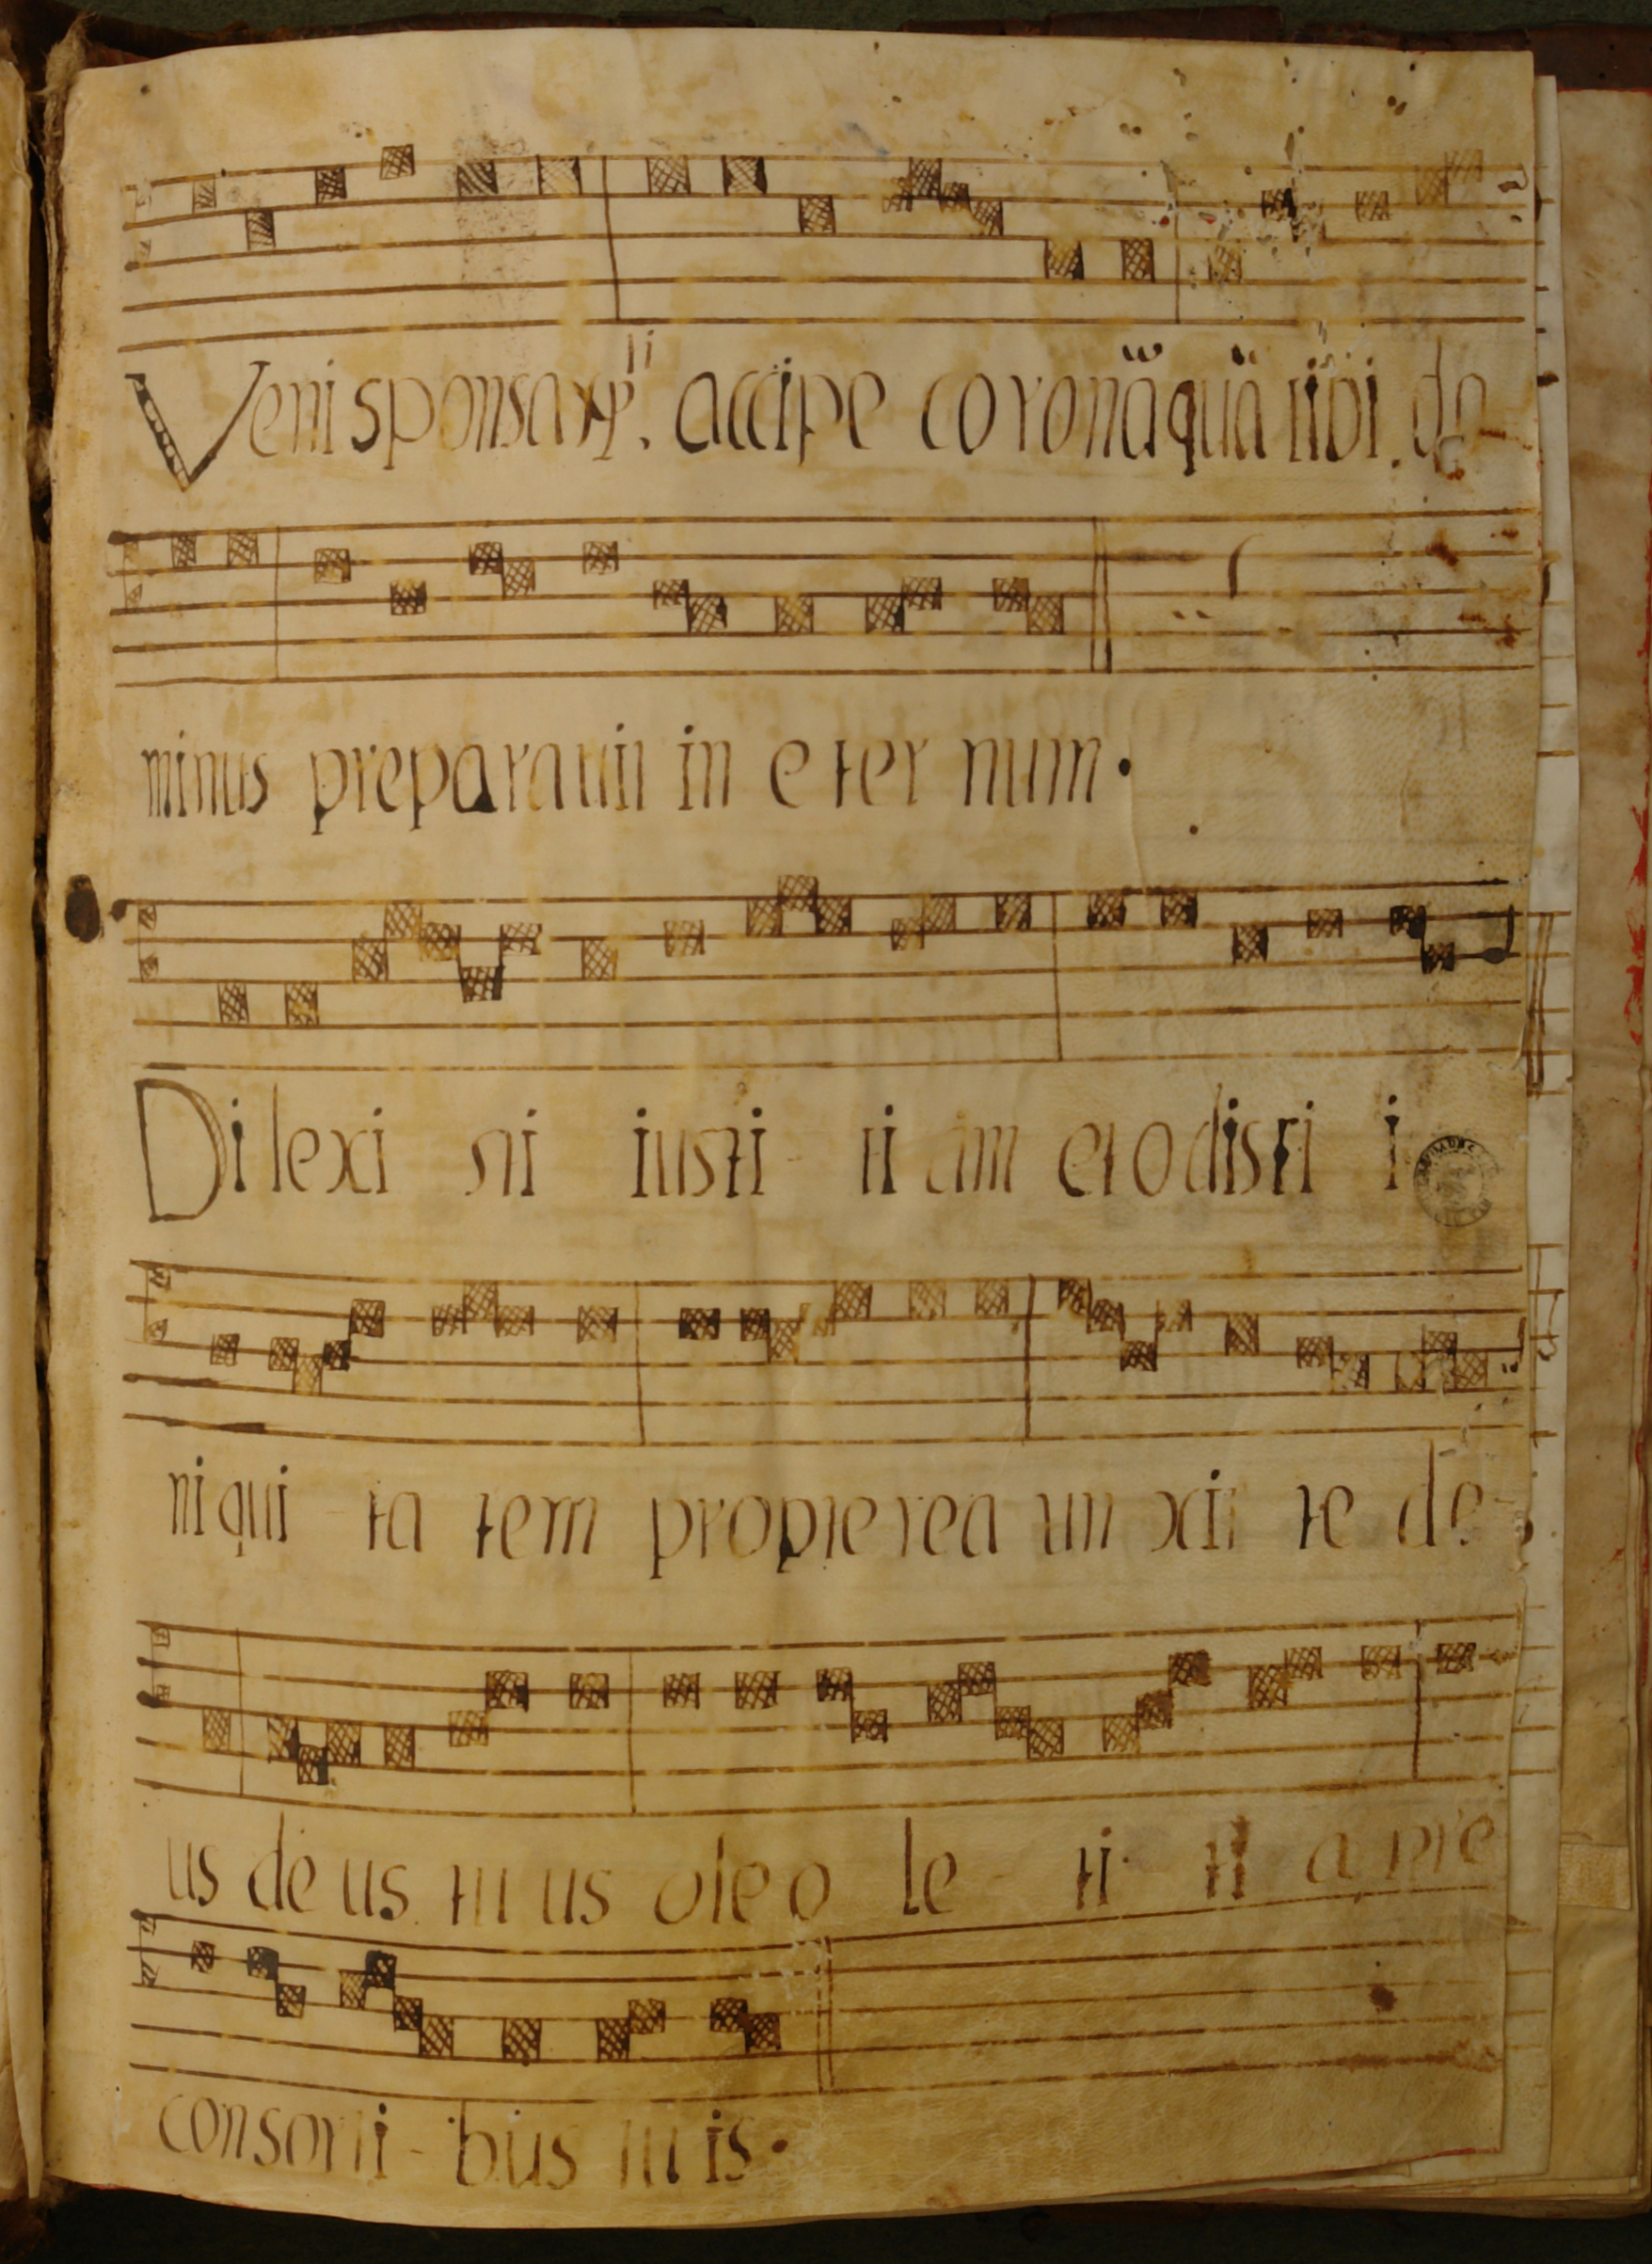 Veni sponsa xpi. accipe coronã quã tibi. do-
minus preparavit in eternum.
Dilexi sti iusti-tiam et odisti i-
niqui-tatem propterea unxit te de-
us deus tuus oleo le-ti-tia pre
consorti-bus tuis.